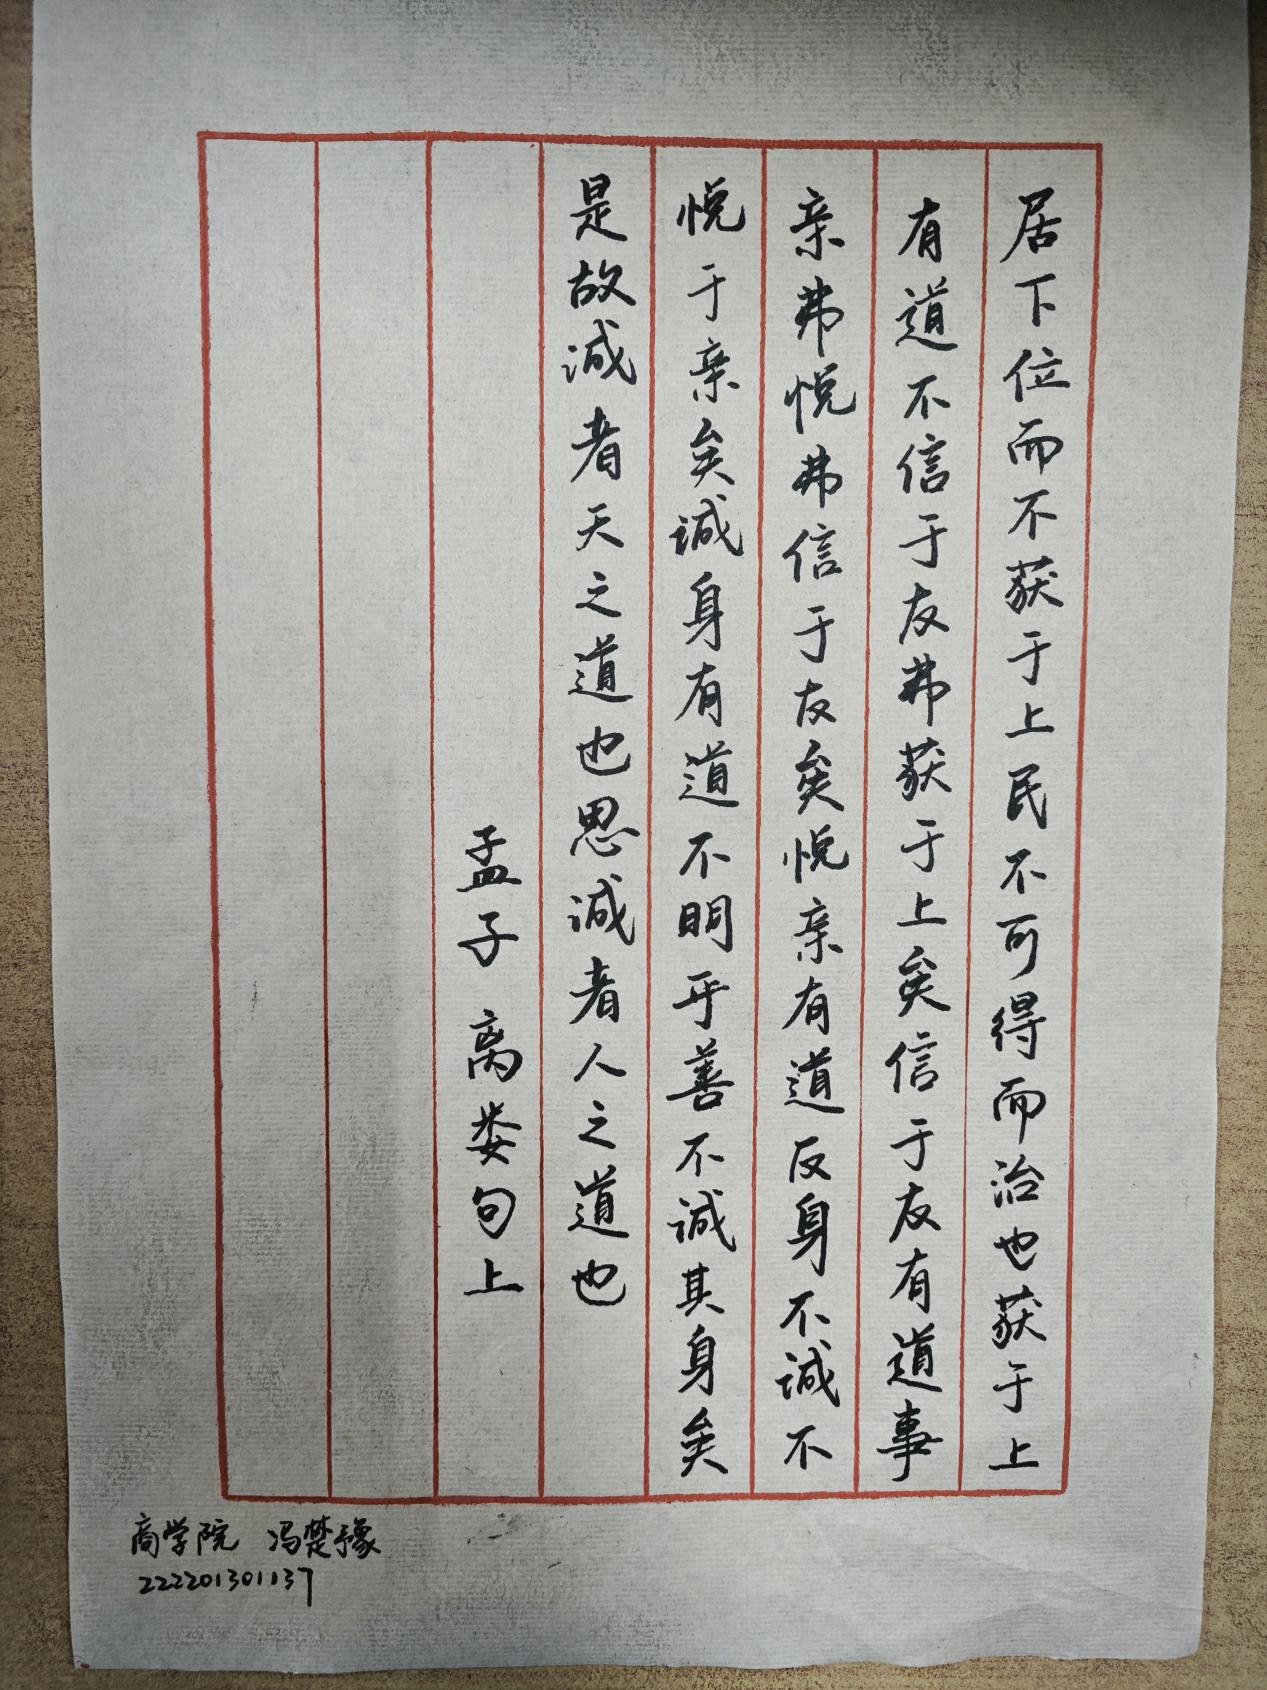 居下位而不获于上民不可得而治也获于上
有道不信于友弗获于上矣信于友有道事
亲弗悦弗信于友矣悦亲有道反身不诚不
悦于亲矣诚身有道不明乎善不诚其身矣
是故诚者天之道也思诚者人之道也
孟子 离娄句上
商学院 冯楚豫
222201301137